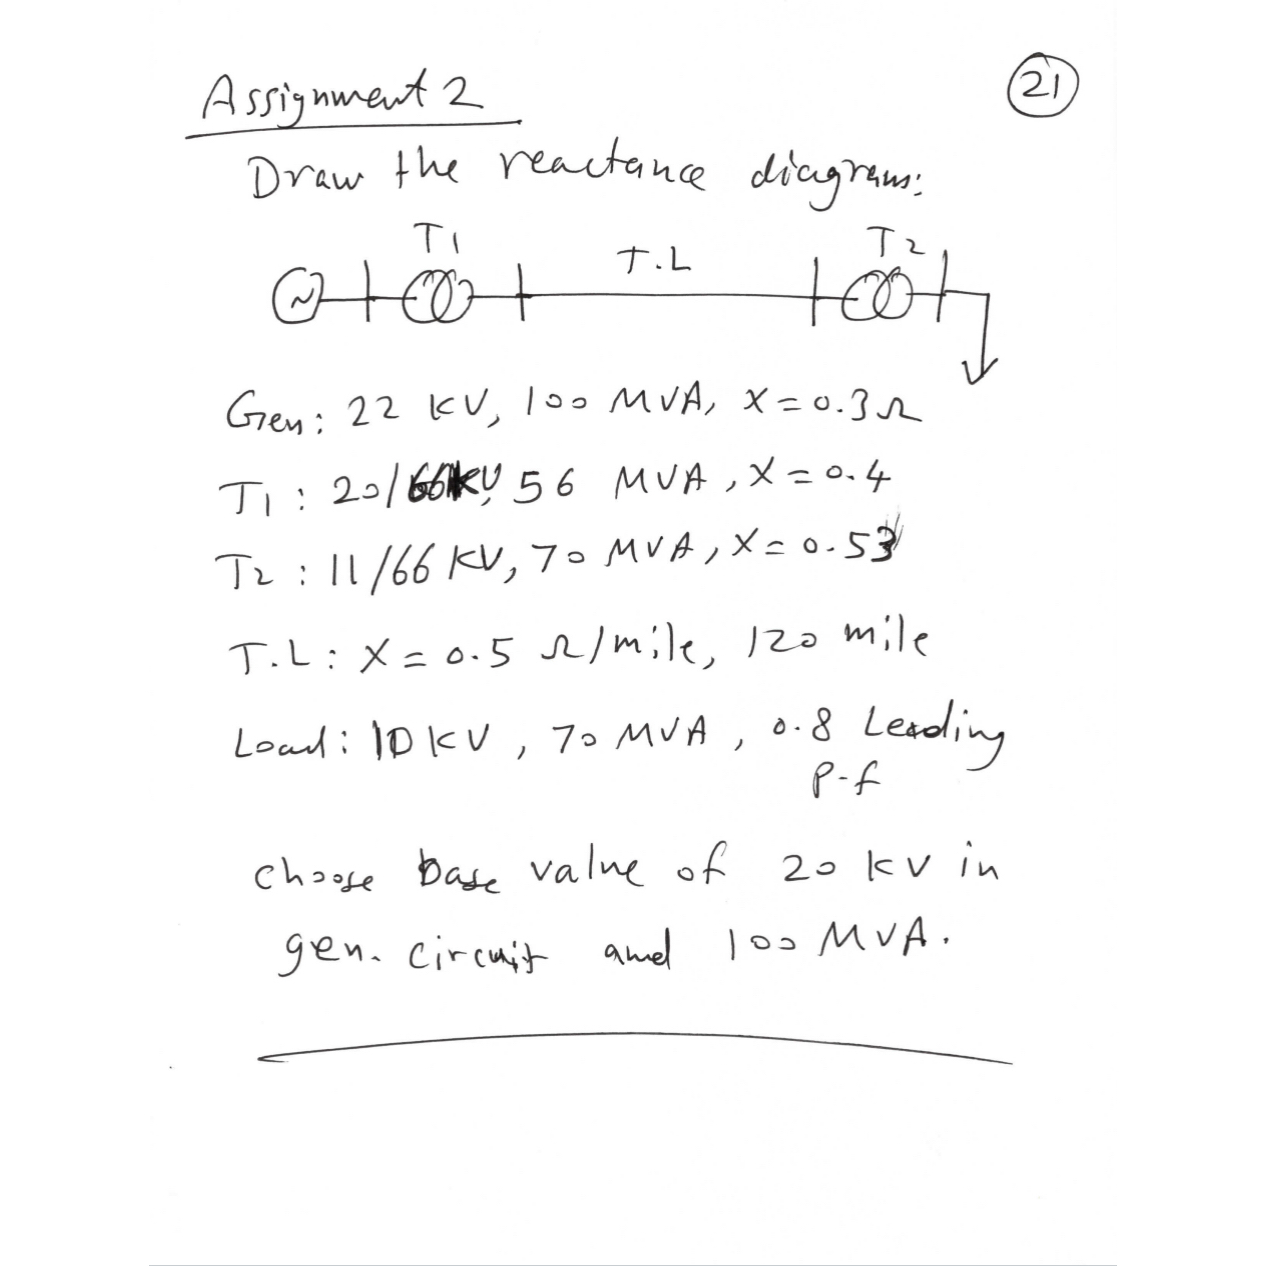 Assignment 2
21
Draw the reactance diagram:
T1
T.L
T2
~
Gen: 22 KV, 100 MVA, X=0.3Ω
T1 : 20/66KV, 56 MVA, X=0.4
T2 : 11/66 KV, 70 MVA, X=0.53
T.L: X=0.5 Ω/mile, 120 mile
Load: 10 KV, 70 MVA, 0.8 Leading
P.f
choose base value of 20 KV in
gen. circuit and 100 MVA.